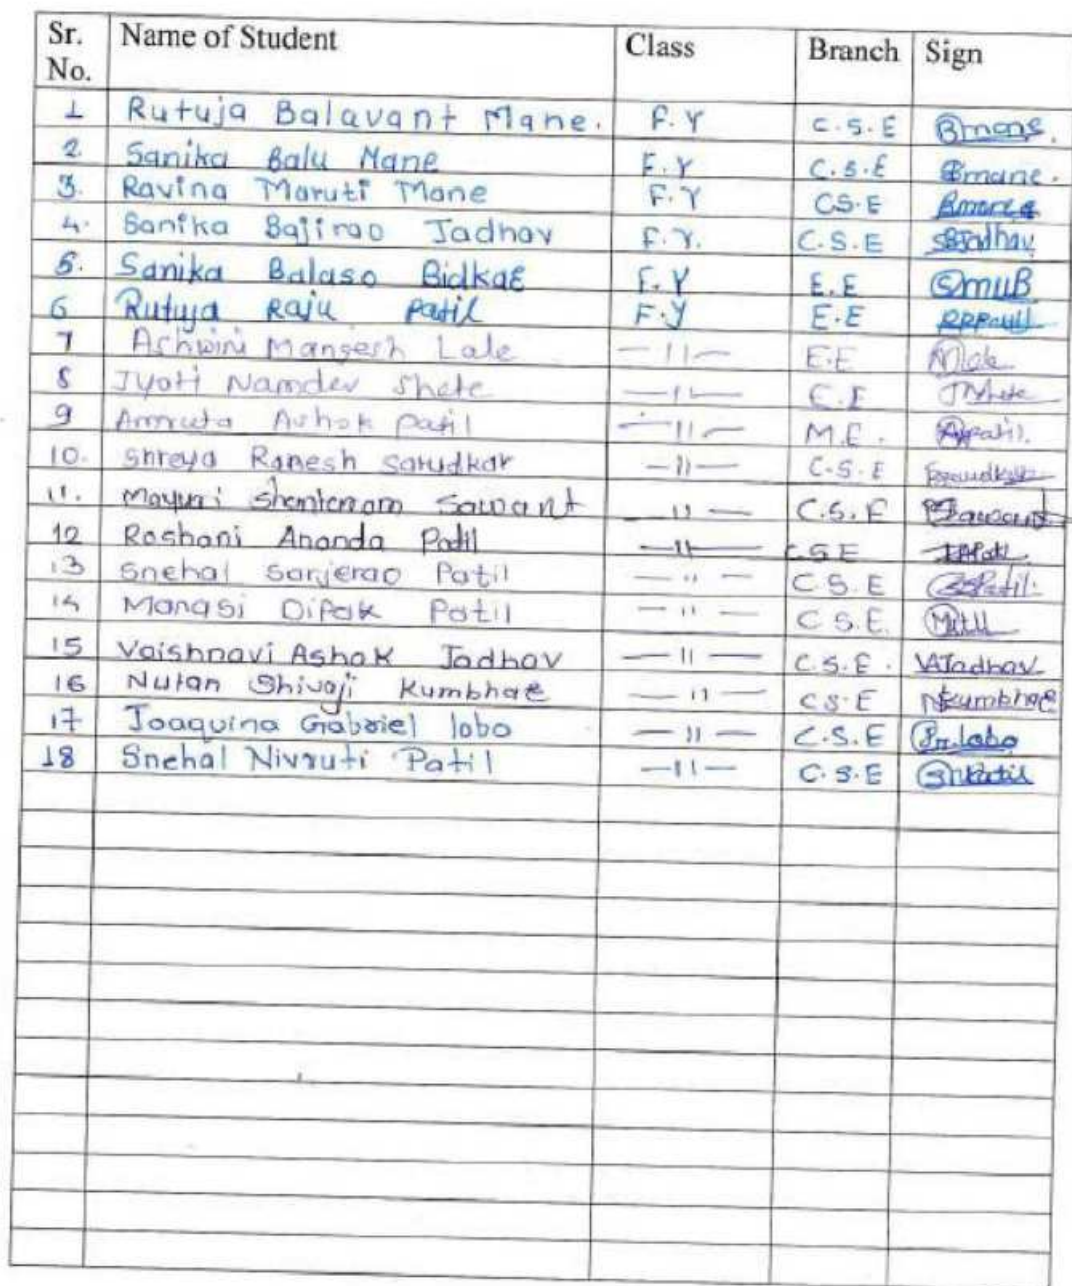 Sr. No. Name of Student Class Branch Sign
1 Rutuja Balavant Mane. F.Y C.S.E Bmane.
2. Sanika Balu Mane F.Y C.S.E Bmane.
3. Ravina Maruti Mane F.Y CS.E
4. Sanika Bajirao Jadhav F.Y. C.S.E SBJadhav
5. Sanika Balaso Bidkar F.Y E.E
6 Rutuja Raju Patil F.Y E.E RRPatil
7 Ashwini Mangesh Lale —11— E.E
8 Jyoti Namdev Shete —11— E.E
9 Amruta Ashok Patil —11— M.E. APatil.
10. Shreya Ramesh Sarudkar —11— C.S.E
11. Mayuri Sawant —11— C.S.E
12 Roshani Ananda Patil —11— C.S.E
13 Snehal Sarjerao Patil —11— C.S.E SSPatil.
14 Manasi Dipak Patil —11— C.S.E.
15 Vaishnavi Ashok Jadhav —11— C.S.E. VAJadhav
16 Nutan Shivaji Kumbhar —11— C.S.E NSKumbhar
17 Joaquina Gabriel lobo —11— C.S.E
18 Snehal Nivruti Patil —11— C.S.E SNPatil